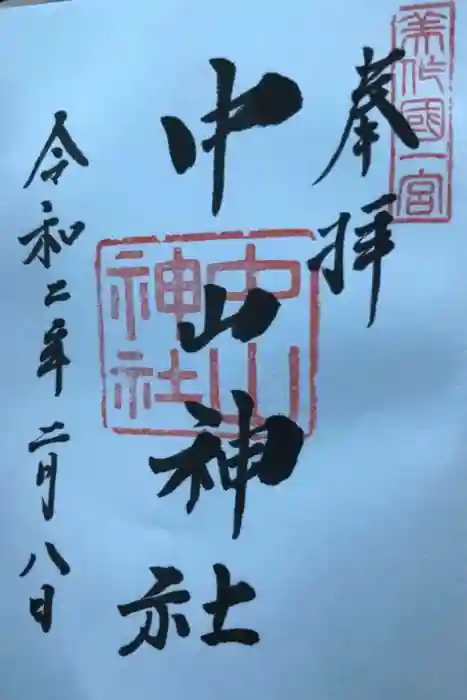 美作國一宮
奉拝
中山神社
中山神社
令和二年二月八日